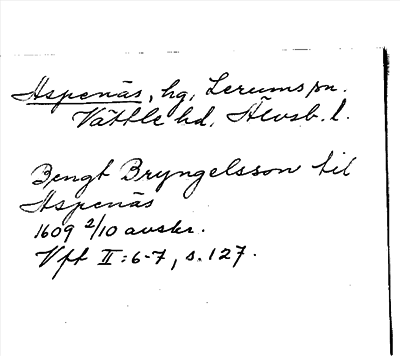 Aspenäs, hg, Lerums sn.
Vättle hd, Älvsb. l.
Bengt Bryngelsson til
Aspenäs
1609 2/10 avskr.
Vft II:6-7, s. 127.